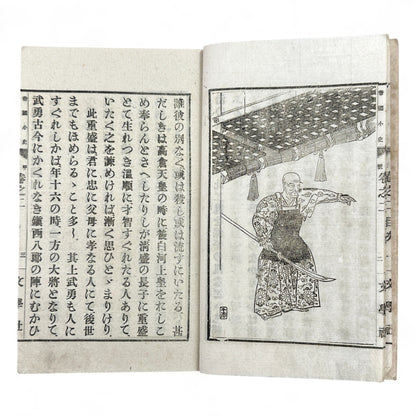 帝國小史
卷之二
二
文學社
誰彼の別なく或は殺し或は流すにいたる、甚
だしきは高倉天皇の時に後白河上皇をおしこ
め奉らんとさへしたりしが清盛の長子に重盛
とて生れつき温順に才智すぐれたる人ありて、
いたく之を諫めければ漸く思ひとゞまりけり、
此重盛は君に忠に父母に孝なる人にて、後世
までもほめらるゝこと多し、其上武勇も人に
すぐれしかば年十六の時一方の大將となりて、
武勇古今にかくれなき鎮西八郎の陣にむかひ
帝國小史
卷之二
三
文學社